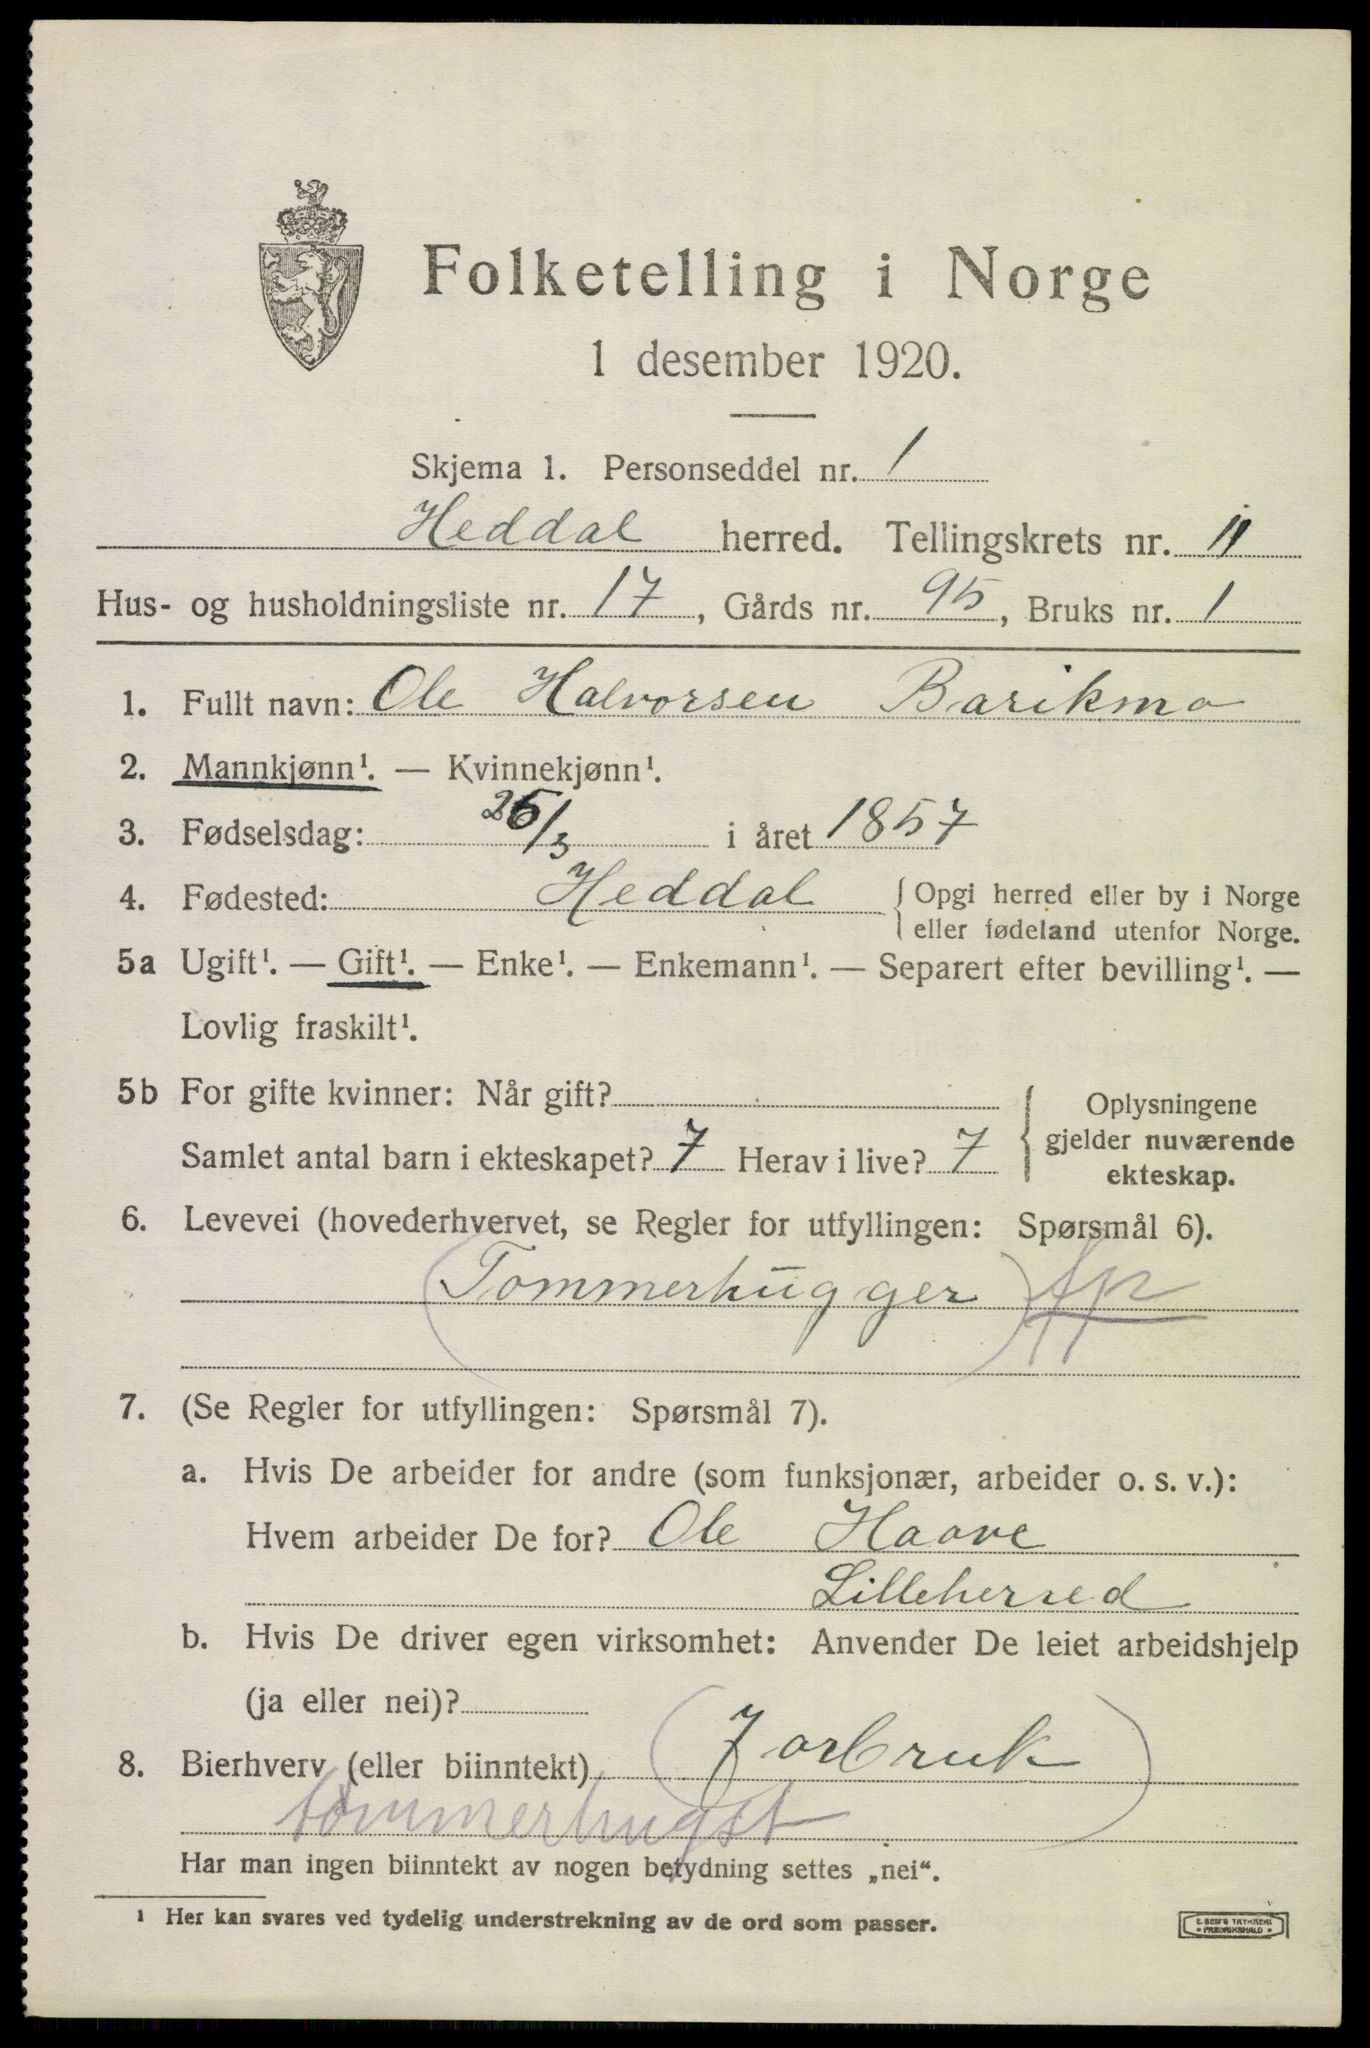 Folketelling i Norge
1 desember 1920.
Skjema 1. Personseddel nr. 1
Heddal herred. Tellingskrets nr. 11
Hus- og husholdningsliste nr. 17, Gårds nr. 95, Bruks nr. 1
1. Fullt navn: Ole Halvorsen Barikmo
2. Mannkjønn¹. — Kvinnekjønn¹.
3. Fødselsdag: 26/3 i året 1857
4. Fødested: Heddal { Opgi herred eller by i Norge
eller fødeland utenfor Norge.
5a Ugift¹. — Gift¹. — Enke¹. — Enkemann¹. — Separert efter bevilling¹. —
Lovlig fraskilt¹.
5b For gifte kvinner: Når gift?
Samlet antal barn i ekteskapet? 7 Herav i live? 7
Oplysningene
gjelder nuværende
ekteskap.
6. Levevei (hovederhvervet, se Regler for utfyllingen: Spørsmål 6).
(Tommerhugger)
7. (Se Regler for utfyllingen: Spørsmål 7).
a. Hvis De arbeider for andre (som funksjonær, arbeider o. s. v.):
Hvem arbeider De for? Ole Haave
Lilleherred
b. Hvis De driver egen virksomhet: Anvender De leiet arbeidshjelp
(ja eller nei)?
8. Bierhverv (eller biinntekt) (Jorbruk)
tømmerhugst
Har man ingen biinntekt av nogen betydning settes „nei“.
¹ Her kan svares ved tydelig understrekning av de ord som passer.
E. SEM'S TRYKKERI
FREDRIKSHALD